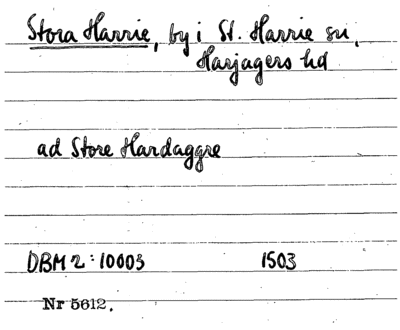 Stora Harrie, by i St. Harrie sn,
Harjagers hd
ad Store Hardaggre
DBM 2:10003 1503
Nr 5612.